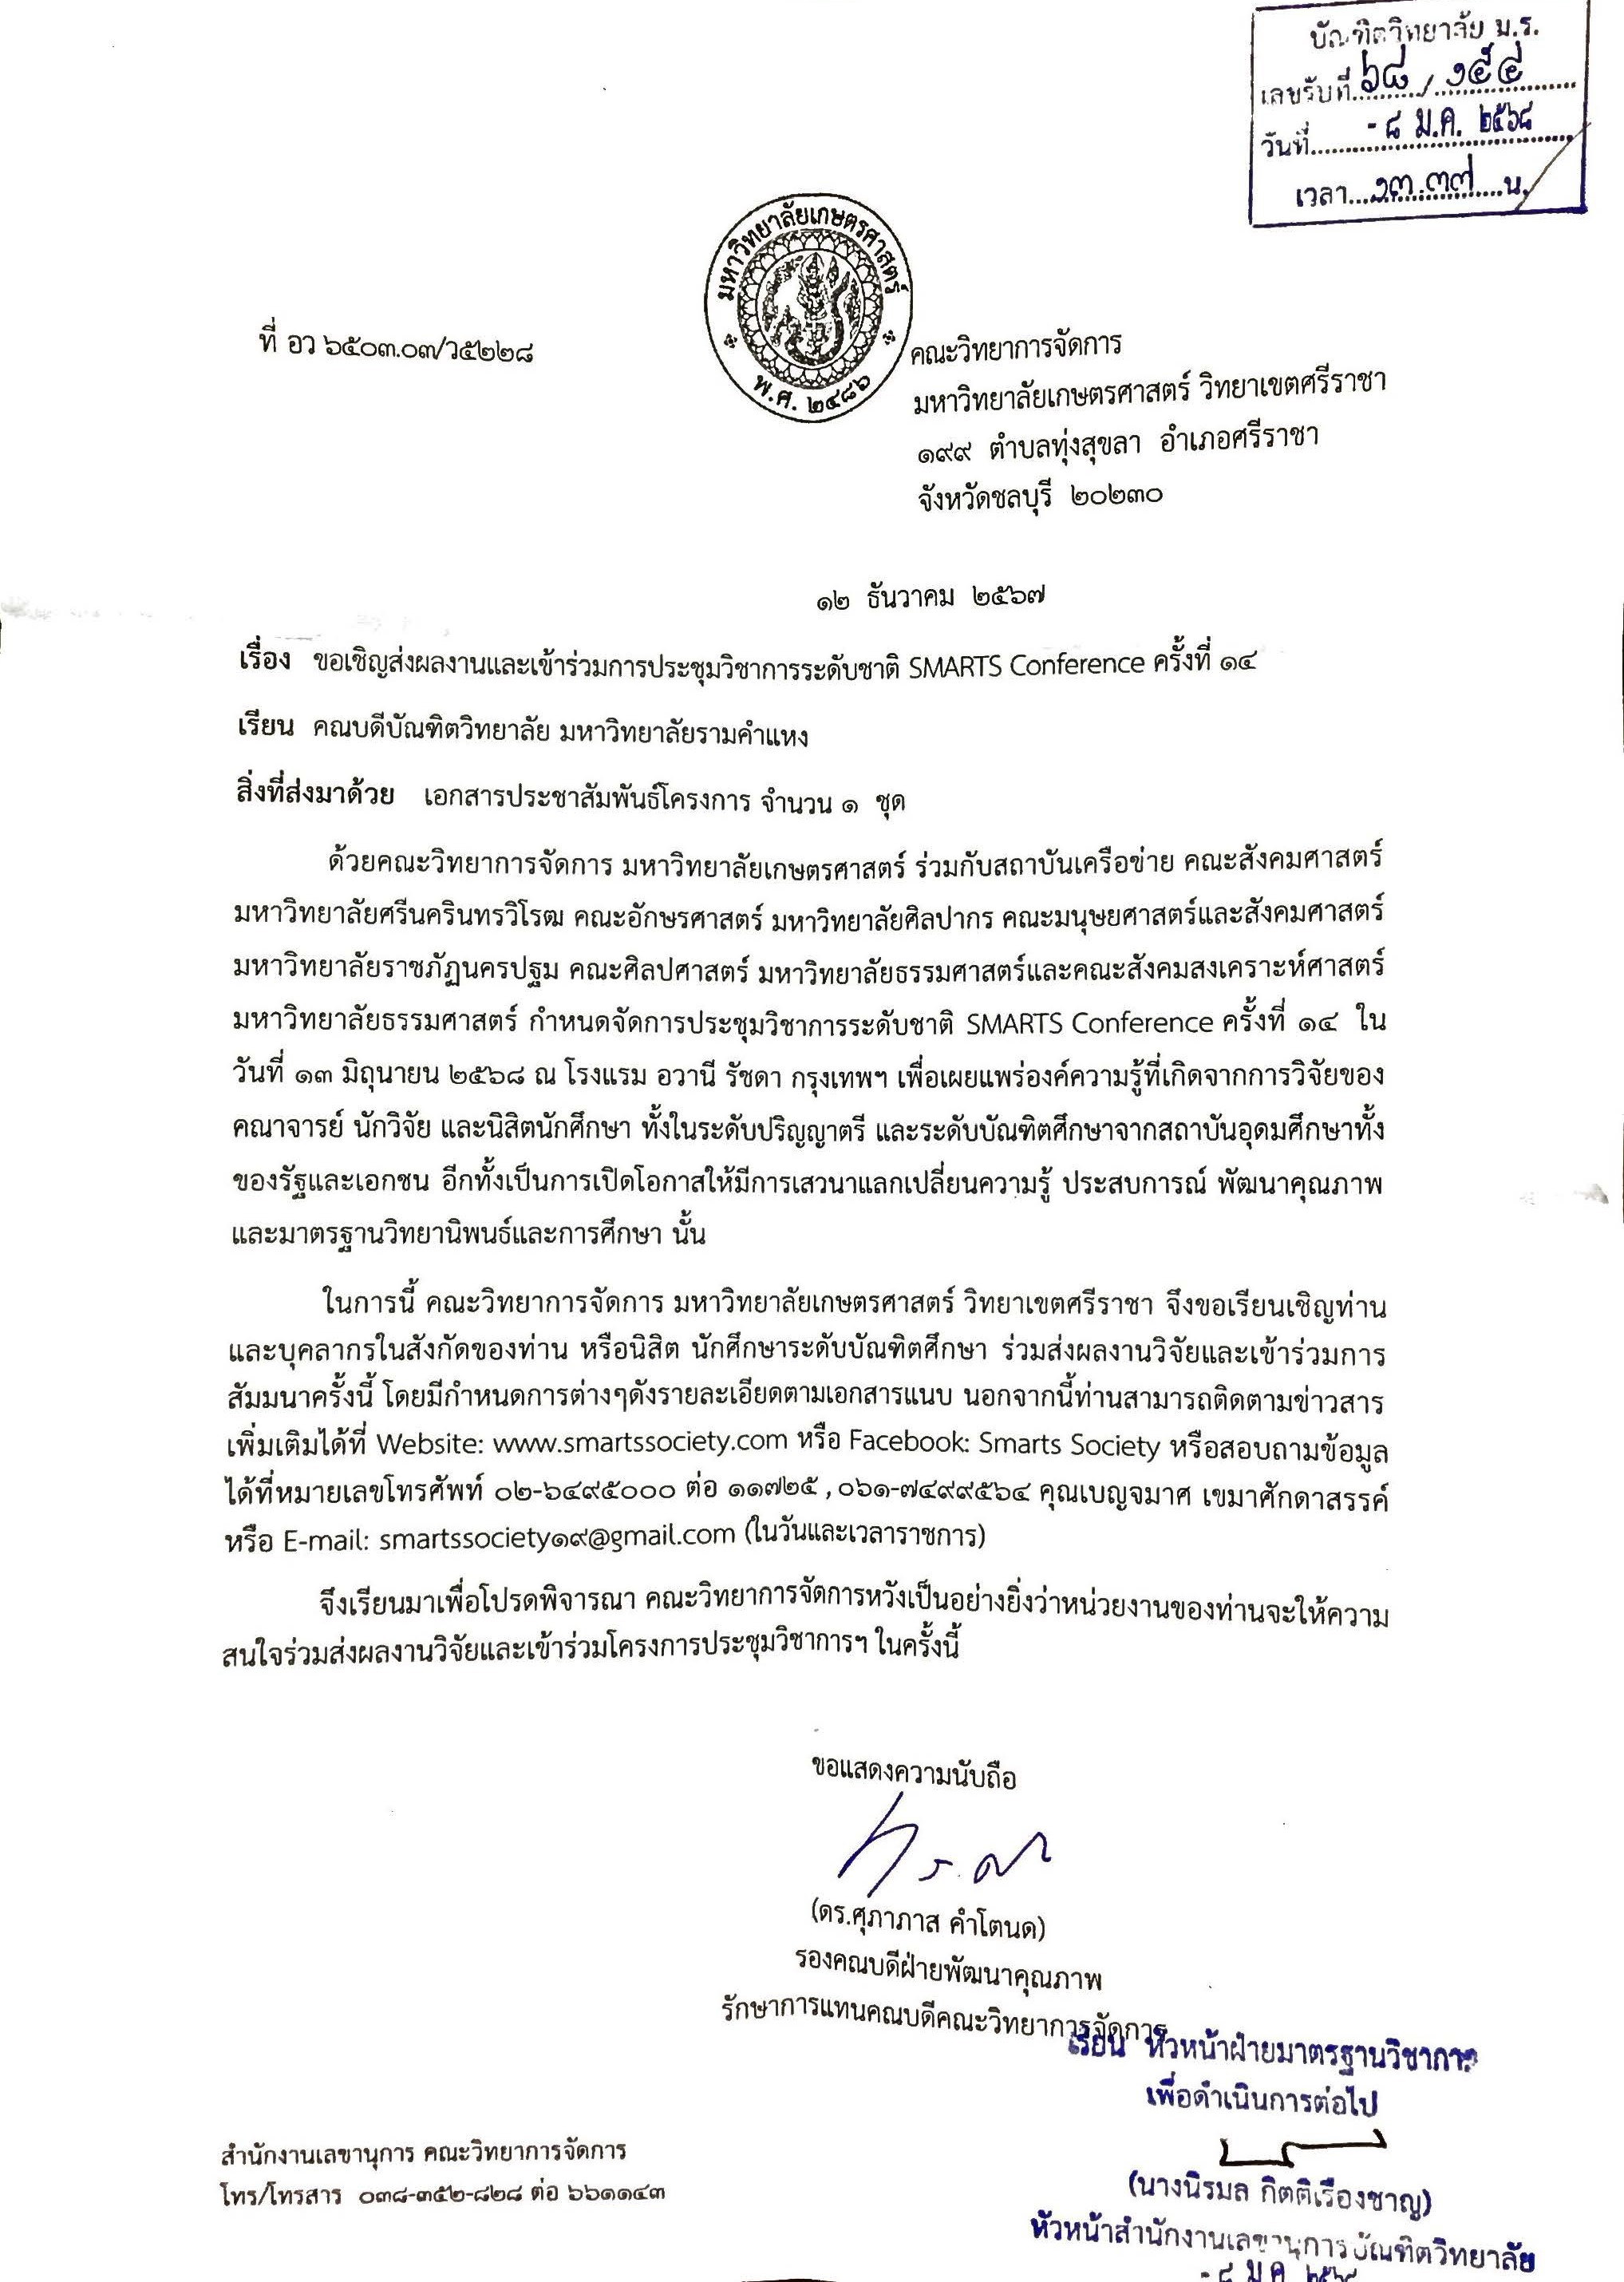 บัณฑิตวิทยาลัย ม.ร.
เลขรับที่ ๖๘ / ๑๕๔
วันที่ - ๘ ม.ค. ๒๕๖๘
เวลา ๑๓.๓๗ น.
มหาวิทยาลัยเกษตรศาสตร์
พ.ศ. ๒๔๘๖
ที่ อว ๖๕๐๓.๐๓/ว๕๒๒๘
คณะวิทยาการจัดการ
มหาวิทยาลัยเกษตรศาสตร์ วิทยาเขตศรีราชา
๑๙๙ ตำบลทุ่งสุขลา อำเภอศรีราชา
จังหวัดชลบุรี ๒๐๒๓๐
๑๒ ธันวาคม ๒๕๖๗
เรื่อง ขอเชิญส่งผลงานและเข้าร่วมการประชุมวิชาการระดับชาติ SMARTS Conference ครั้งที่ ๑๔
เรียน คณบดีบัณฑิตวิทยาลัย มหาวิทยาลัยรามคำแหง
สิ่งที่ส่งมาด้วย เอกสารประชาสัมพันธ์โครงการ จำนวน ๑ ชุด
ด้วยคณะวิทยาการจัดการ มหาวิทยาลัยเกษตรศาสตร์ ร่วมกับสถาบันเครือข่าย คณะสังคมศาสตร์
มหาวิทยาลัยศรีนครินทรวิโรฒ คณะอักษรศาสตร์ มหาวิทยาลัยศิลปากร คณะมนุษยศาสตร์และสังคมศาสตร์
มหาวิทยาลัยราชภัฏนครปฐม คณะศิลปศาสตร์ มหาวิทยาลัยธรรมศาสตร์และคณะสังคมสงเคราะห์ศาสตร์
มหาวิทยาลัยธรรมศาสตร์ กำหนดจัดการประชุมวิชาการระดับชาติ SMARTS Conference ครั้งที่ ๑๔ ใน
วันที่ ๑๓ มิถุนายน ๒๕๖๘ ณ โรงแรม อวานี รัชดา กรุงเทพฯ เพื่อเผยแพร่องค์ความรู้ที่เกิดจากการวิจัยของ
คณาจารย์ นักวิจัย และนิสิตนักศึกษา ทั้งในระดับปริญญาตรี และระดับบัณฑิตศึกษาจากสถาบันอุดมศึกษาทั้ง
ของรัฐและเอกชน อีกทั้งเป็นการเปิดโอกาสให้มีการเสวนาแลกเปลี่ยนความรู้ ประสบการณ์ พัฒนาคุณภาพ
และมาตรฐานวิทยานิพนธ์และการศึกษา นั้น
ในการนี้ คณะวิทยาการจัดการ มหาวิทยาลัยเกษตรศาสตร์ วิทยาเขตศรีราชา จึงขอเรียนเชิญท่าน
และบุคลากรในสังกัดของท่าน หรือนิสิต นักศึกษาระดับบัณฑิตศึกษา ร่วมส่งผลงานวิจัยและเข้าร่วมการ
สัมมนาครั้งนี้ โดยมีกำหนดการต่างๆดังรายละเอียดตามเอกสารแนบ นอกจากนี้ท่านสามารถติดตามข่าวสาร
เพิ่มเติมได้ที่ Website: www.smartssociety.com หรือ Facebook: Smarts Society หรือสอบถามข้อมูล
ได้ที่หมายเลขโทรศัพท์ ๐๒-๖๔๙๕๐๐๐ ต่อ ๑๑๗๒๕ , ๐๖๑-๗๔๙๙๕๖๔ คุณเบญจมาศ เขมาศักดาสรรค์
หรือ E-mail: smartssociety๑๙@gmail.com (ในวันและเวลาราชการ)
จึงเรียนมาเพื่อโปรดพิจารณา คณะวิทยาการจัดการหวังเป็นอย่างยิ่งว่าหน่วยงานของท่านจะให้ความ
สนใจร่วมส่งผลงานวิจัยและเข้าร่วมโครงการประชุมวิชาการฯ ในครั้งนี้
ขอแสดงความนับถือ
(ดร.ศุภาภาส คำโตนด)
รองคณบดีฝ่ายพัฒนาคุณภาพ
รักษาการแทนคณบดีคณะวิทยาการจัดการ
เรียน หัวหน้าฝ่ายมาตรฐานวิชาการ
เพื่อดำเนินการต่อไป
(นางนิรมล กิตติเรืองชาญ)
หัวหน้าสำนักงานเลขานุการบัณฑิตวิทยาลัย
- ๘ ม.ค. ๒๕๖๘
สำนักงานเลขานุการ คณะวิทยาการจัดการ
โทร/โทรสาร ๐๓๘-๓๕๒-๘๒๘ ต่อ ๖๖๑๑๔๓